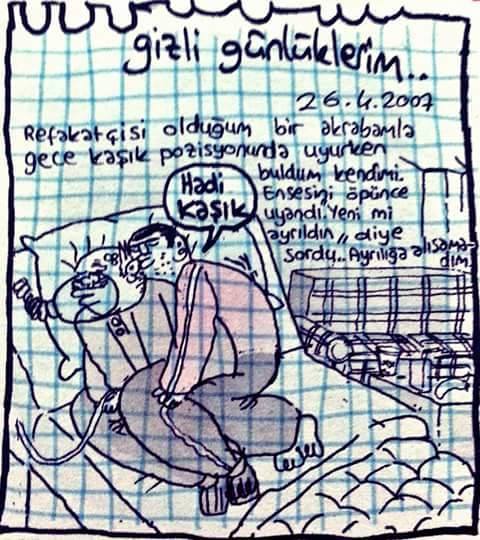 gizli günlüklerim..
26.4.2007
Refakatçisi olduğum bir akrabamla
gece kaşık pozisyonunda uyurken
buldum kendimi.
Ensesini öpünce
uyandı. "Yeni mi
ayrıldın" diye
sordu.. Ayrılığa alışama-
dım.
Hadi
kaşık